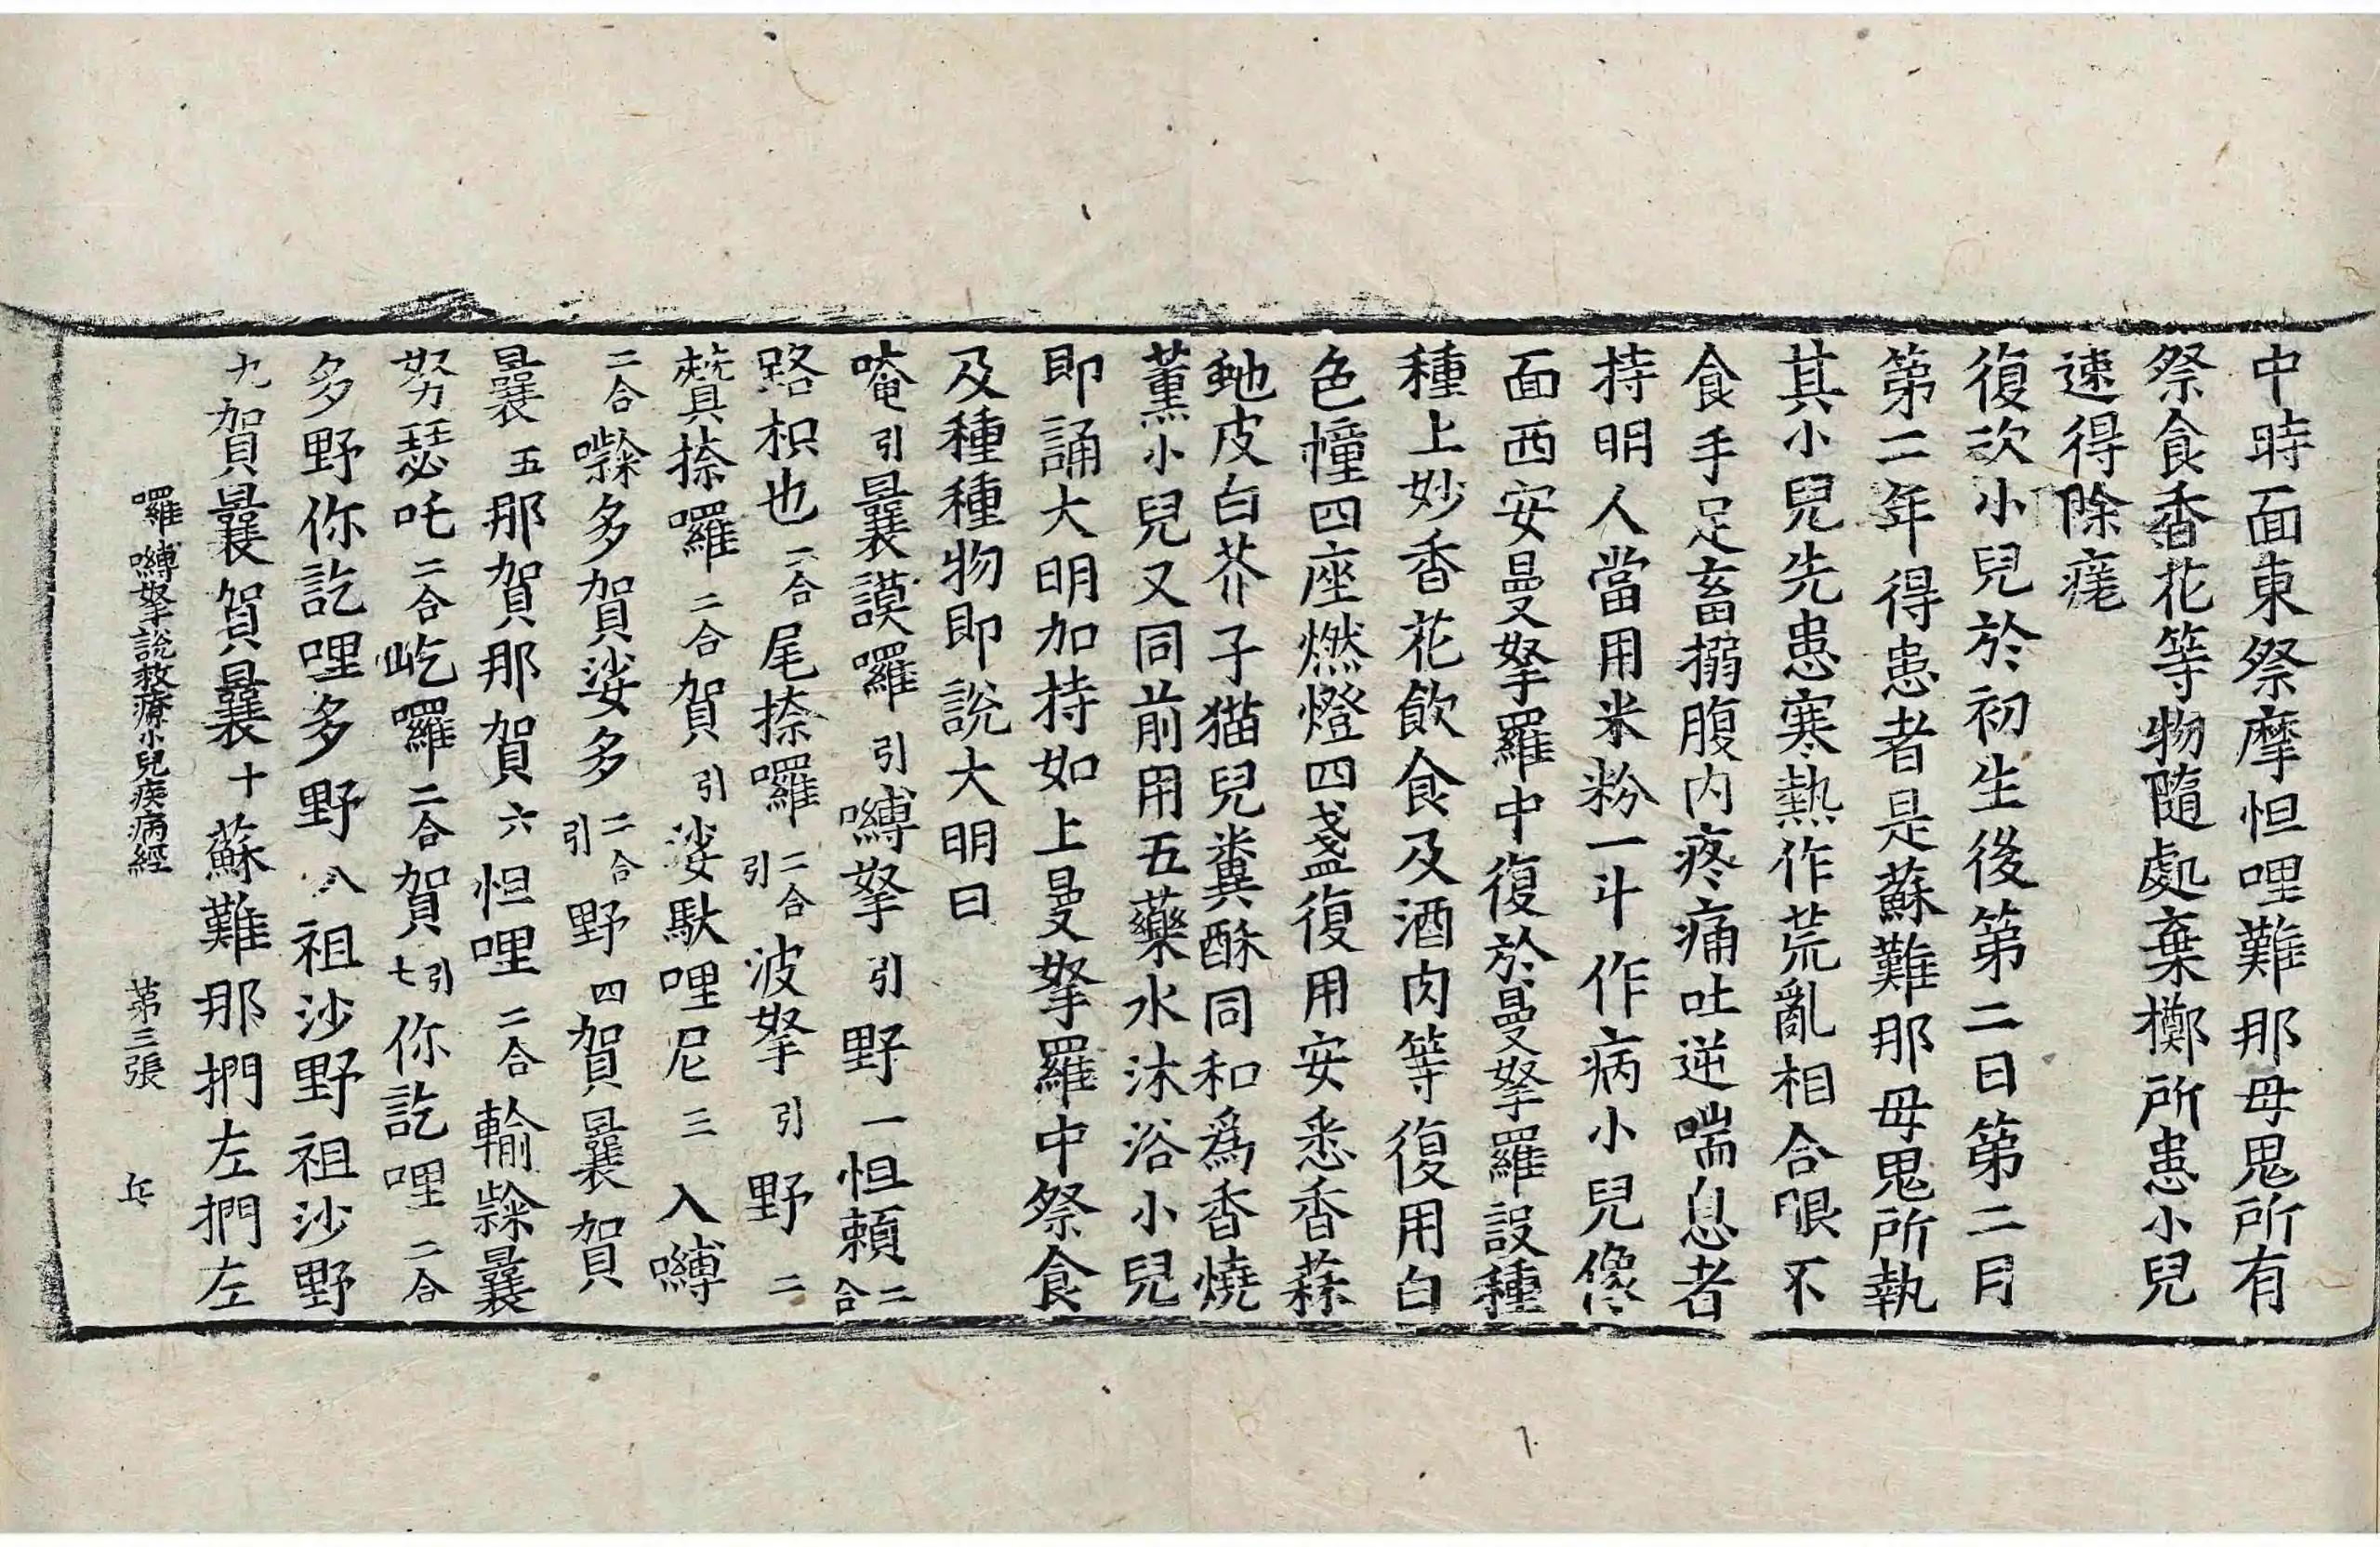 中時面東祭摩怛哩難那母鬼所有
祭食香花等物隨處棄擲所患小兒
速得除瘥
復次小兒於初生後第二日第二月
第二年得患者是蘇難那母鬼所執
其小兒先患寒熱作荒亂相合眼不
食手足畜搦腹內疼痛吐逆喘息者
持明人當用米粉一斗作病小兒像
面西安曼拏羅中復於曼拏羅設種
種上妙香花飲食及酒肉等復用白
色幢四座燃燈四盞復用安悉香蒜
虵皮白芥子猫兒糞酥同和為香燒
薰小兒又同前用五藥水沐浴小兒
即誦大明加持如上曼拏羅中祭食
及種種物即說大明曰
唵引曩謨囉引嚩拏引野一怛賴二合
路枳也二合尾捺囉二合引波拏引野二
贊捺囉二合賀引娑馱哩尼三入嚩
二合多賀娑多二合引野四賀曩賀
曩五那賀那賀六怛哩二合輸曩
努瑟吒二合屹囉二合賀引七你訖哩二合
多野你訖哩多野八祖沙野祖沙野
九賀曩賀曩十蘇難那捫左捫左
囉嚩拏說救療小兒疾病經 第三張